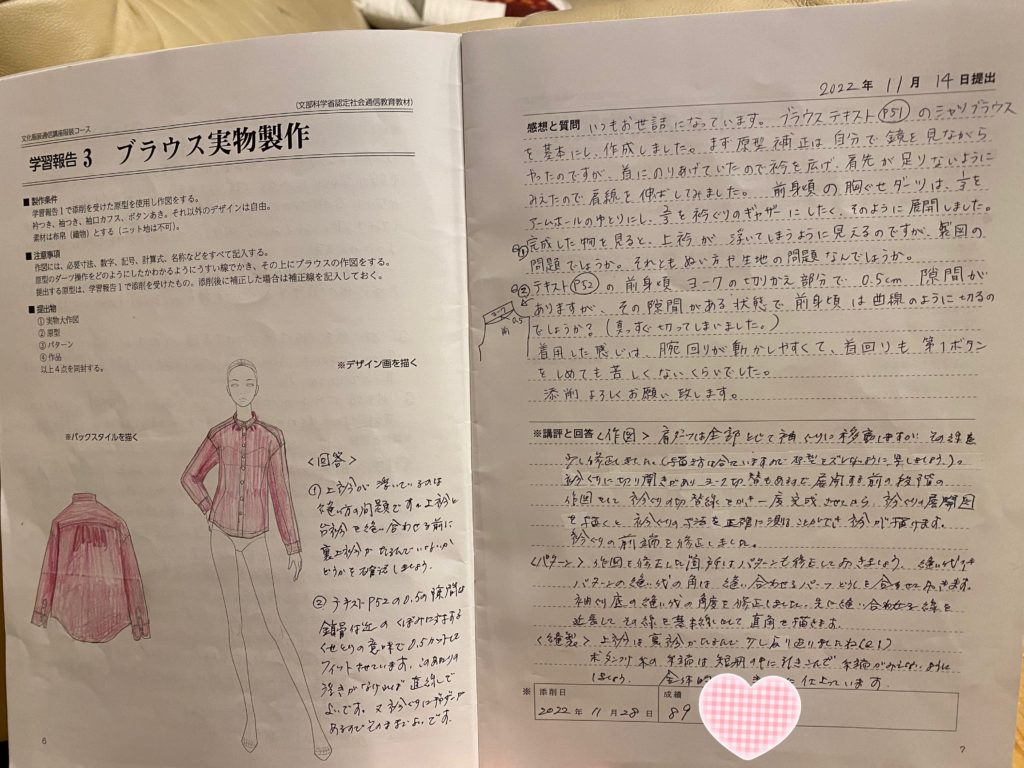 (文部科学省認定社会通信教育教材)
文化服装通信講座服装コース
学習報告 3 ブラウス実物製作
■ 製作条件
学習報告1で添削を受けた原型を使用し作図をする。
衿つき、袖つき、袖口カフス、ボタンあき。それ以外のデザインは自由。
素材は布帛(織物)とする(ニット地は不可)。
■ 注意事項
作図には、必要寸法、数字、記号、計算式、名称などをすべて記入する。
原型のダーツ操作をどのようにしたかわかるようにうすい線でかき、その上にブラウスの作図をする。
提出する原型は、学習報告1で添削を受けたもの。添削後に補正した場合は補正線を記入しておく。
■ 提出物
① 実物大作図
② 原型
③ パターン
④ 作品
以上4点を同封する。
※デザイン画を描く
※バックスタイルを描く
〈回答〉
① 上衿が浮いているのは
縫い方の問題です。上衿と
台衿を縫い合わせる前に
裏上衿がたるんでいないか
どうかを確認しましょう。
② テキストP52の0.5の隙間は
鎖骨の近のくぼみに
くせとりの意味で0.5カットして
フィットさせています。このあたりの
浮きがなければ直線で
よいです。又衿ぐりにギャザーが
あるのでそのままでよいです。
6
2022年 11月 14日提出
感想と質問 いつもお世話になっています。ブラウステキストP51のシャツブラウス
を基本にし、作成しました。まず原型補正は自分で鏡を見ながら
やったのですが、首にのりあげていたので衿を広げ、肩先が足りないように
みえたので肩線を伸ばしてみました。前身頃の胸ぐせダーツは、1/3を
アームホールのゆとりにし、2/3を衿ぐりのギャザーにしたく、そのように展開しました。
Q① 完成した物を見ると、上衿が浮いてしまうように見えるのですが、製図の
問題でしょうか。それともぬい方や生地の問題なんでしょうか。
Q② テキストP52の前身頃ヨークの切りかえ部分で0.5cm隙間が
ありますが、その隙間がある状態で前身頃は曲線のように切るの
でしょうか?(真っすぐ切ってしまいました。)
ヨーク
0.5
前
着用した感じは、腕回りが動かしやすくて、首回りも第1ボタン
をしめても苦しくないくらいでした。
添削よろしくお願い致します。
※講評と回答〈作図〉肩ダーツは全部とじて袖ぐりに移動しますが、その線を
少し修正しました。
衿ぐりに切り開きがありヨーク切替もあるので展開
作図をして衿ぐりの切替線をかき一度完成させてから、衿ぐりの展開図
を描くと、衿ぐりの寸法を正確に測ることができ衿が描けます。
衿ぐりの前端を修正しました。
〈パターン〉作図を修正した箇所はパターンも修正しておきましょう。縫い代付き
パターンの縫い代の角は、縫い合わせるパーツどうしを合わせておきます。
袖ぐり底の縫い代の角度を修正しました。先に縫い合わせる線を
延長してその線を基本線にして直角を描きます。
〈縫製〉上衿は裏衿がたるんで少し反り返りましたね(Q1)
全体的 に仕上っています。
※ 添削日 2022年 11月 28日
成績 89
7